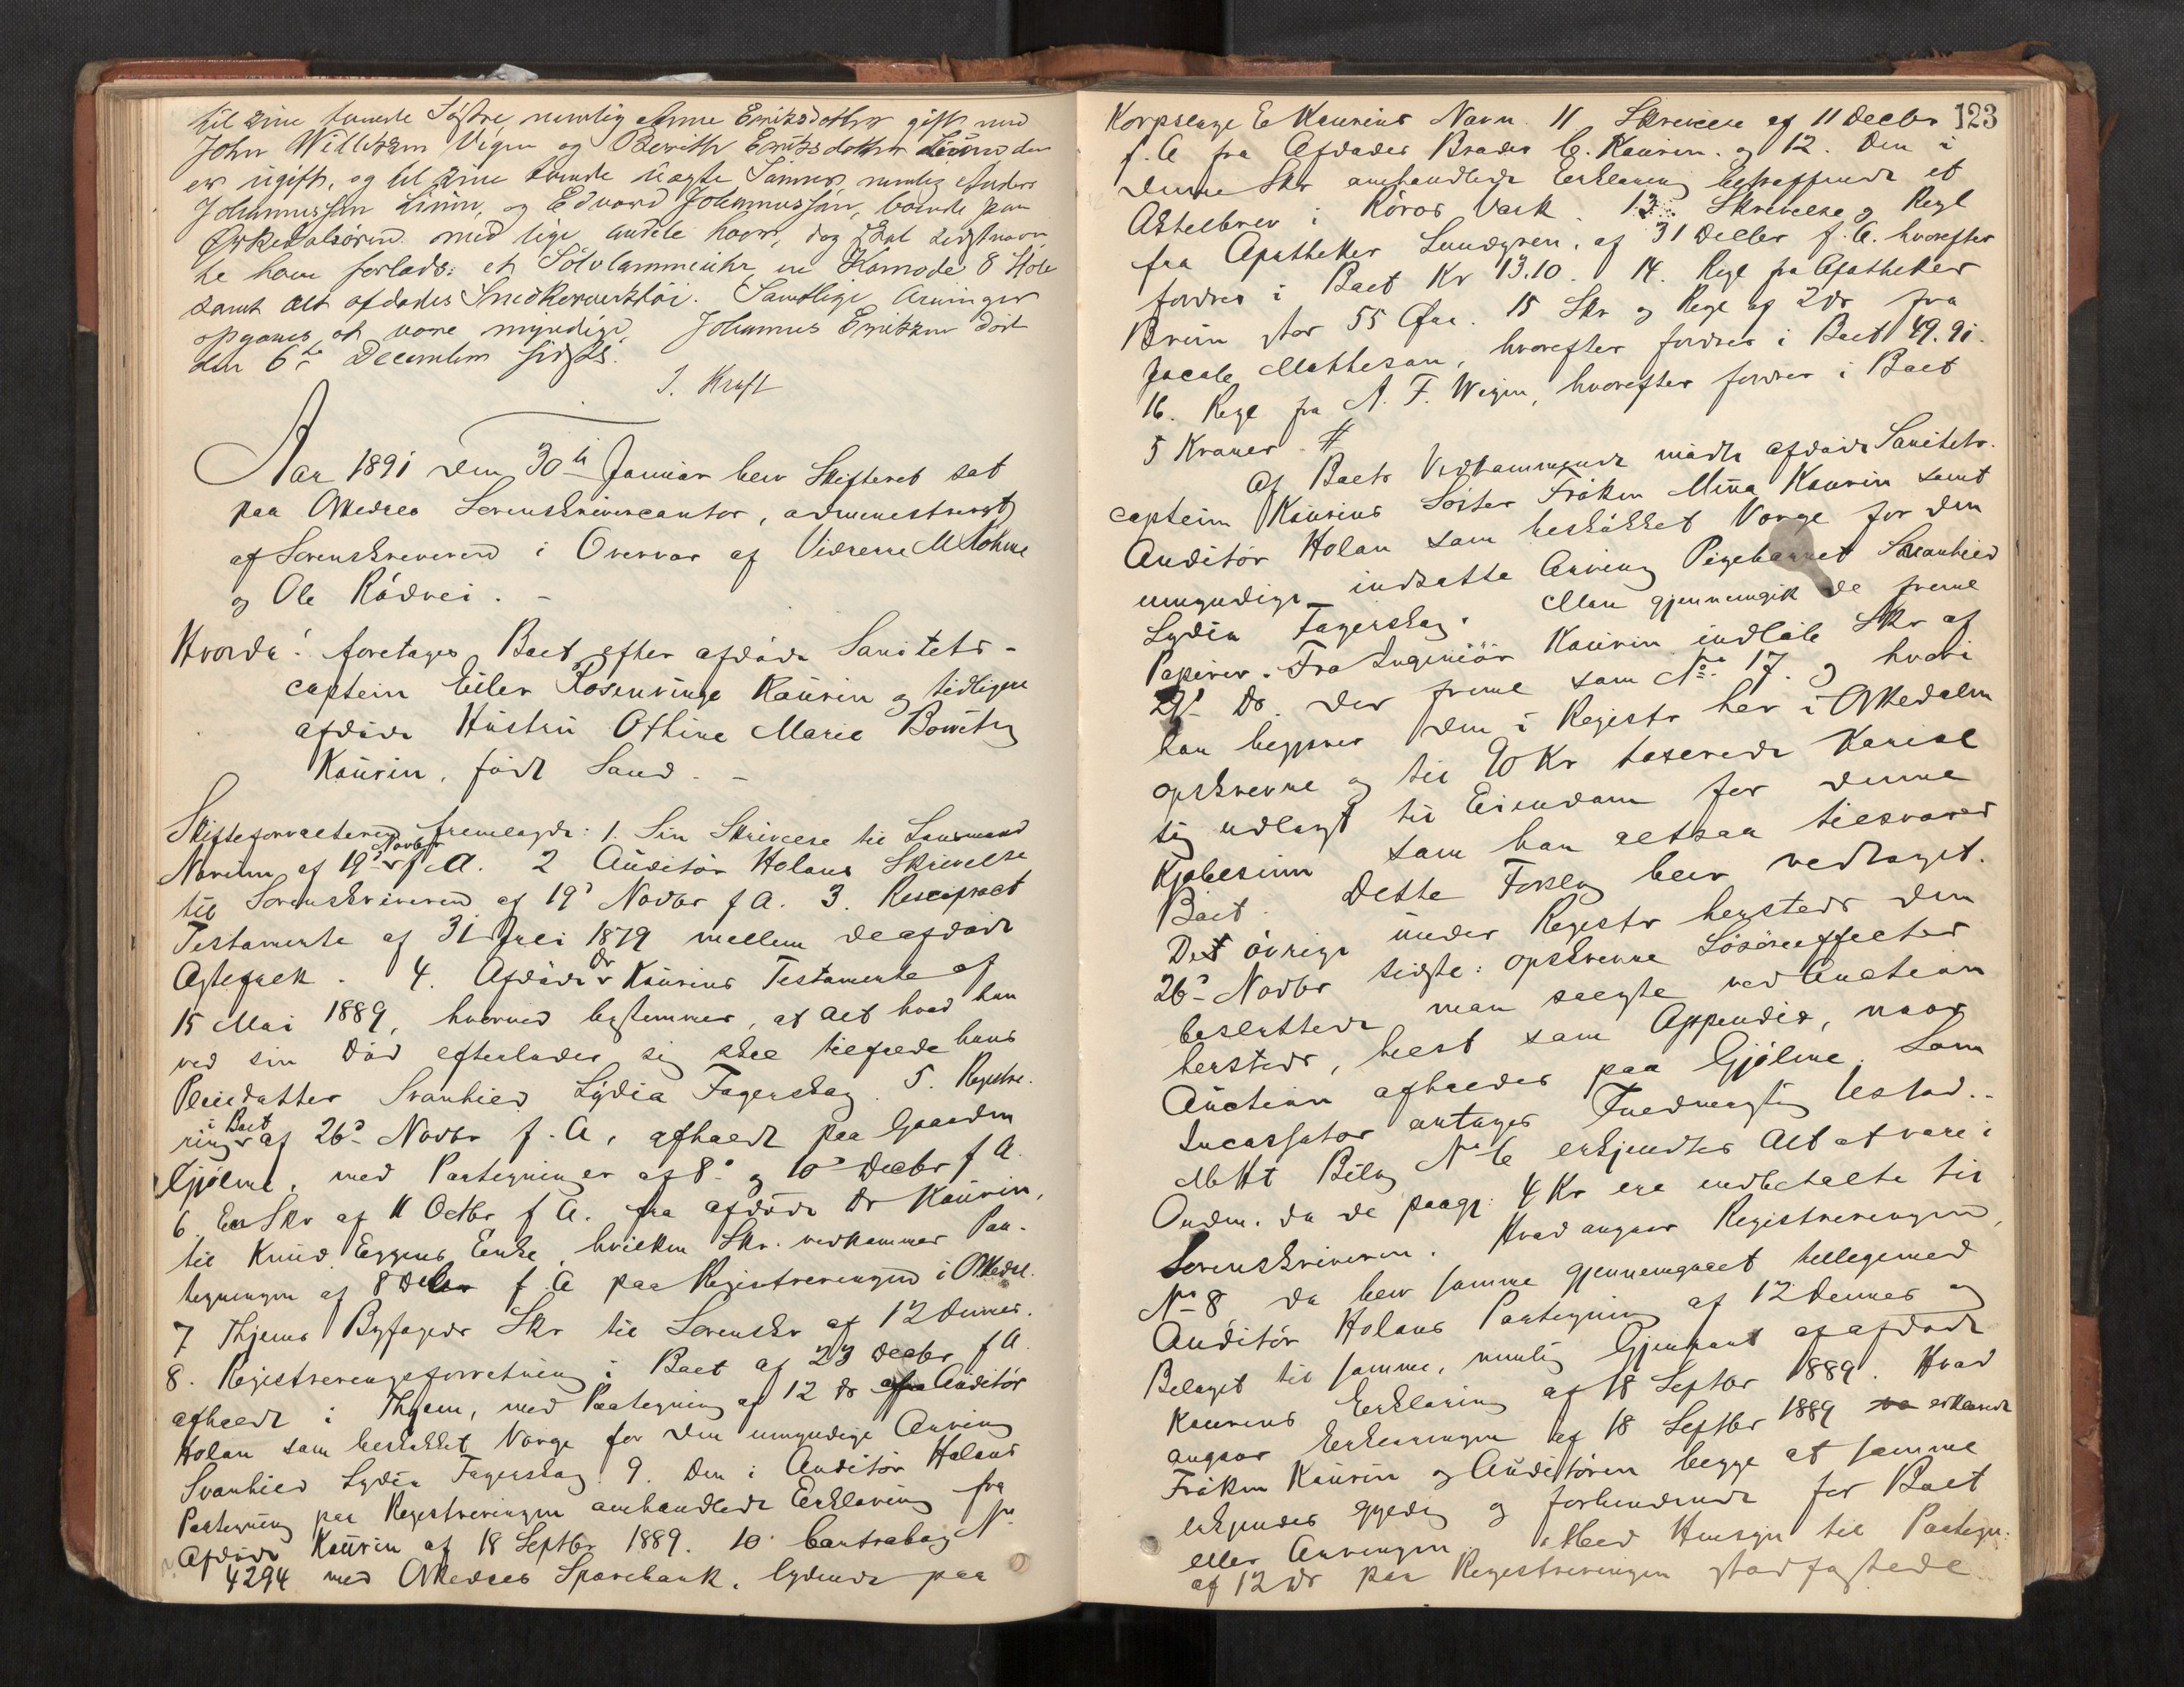 til sine tvende Søstre nemlig Anne Eriksdotter gift med
John Willikzen Vigen og Berith Eriksdotter Linn den
er ugift, og til sine tvende uægte Sønner, nemlig Anders
Johannessen Linn, og Edvard Johannessen, boende paa
Ørkedalsøren med lige Andele hver, dog skal sidstnævn
te have forlods: et Sølvlommeuhr, en Komode 8 Stole
samt alt afdødes Snedkerverktøi. Samtlige Arvinger
opgaves at være myndige. Johannes Eriksen døde
den 6te December sidstl.
J. Kraft
Aar 1891 den 30te Januar blev Skifteret sat
paa Ørkedals Sorenskrivercontor, administreret
af Sorenskriveren i Overvær af Vidnerne M Mohne
og Ole Rødvei. -
Hvorda: foretages Boet efter afdøde Sanitets-
captein Eiler Rosenvinge Kaurin og tidligere
afdøde Hustru Othine Marie Bowitz
Kaurin, født Sand. -
Skifteforvalteren fremlagde: 1. Sin Skrivelse til Lensmand
Novbr
Narum af 19de f A. 2 Auditør Holans Skrivelse
til Sorenskriveren af 19de Novbr f A. 3. Reciproct
Testamente af 31 Juli 1879 mellem de afdøde
Dr
Ægtefolk. 4. Afdøde Kaurins Testamente af
15 Mai 1889, hvorved bestemmes, at alt hvad han
ved sin Død efterlader sig skal tilfalde hans
Pleiedatter Svanhild Lydia Fagerskag. 5. Registre-
i Boet
ring af 26de Novbr f. A, afholdt paa Gaarden
Gjølme, med Paategninger af 8de og 10de Decbr f A.
6 En Skr af 11 Octbr f A. fra afdøde Dr Kaurin,
til Knud Eggens Enke, hvilken Skr. vedkommer Paa-
tegningen af 8 Decbr f. A paa Registreringen i Ørkedal.
7 Thjems Byfogeds Skr til Sorenskr af 12 dennes.
8. Registreringsforretning i Boet af 23 Decbr f A.
afholdt i Thjem, med Paategning af 12 ds fra Auditør
Holan som beskikket Værge for den umyndige Arving
Svanhild Lydia Fagerskag. 9. Den i Auditør Holans
Paategning paa Registreringen omhandlede Erklæring fra
Afdøde Kaurin af 18 Septbr 1889. 10. Contrabog No
4294 med Ørkedals Sparebank, lydende paa
123
Korpslæge E Kaurins Navn. 11 Skrivelse af 11 Decbr
f. A fra Afdødes Broder C. Kaurin. og 12. Den i
denne Skr omhandlede Erklæring betræffende et
Aktiebrev i Røros Værk. 13. Skrivelse og Regl
fra Apotheker Lundgren, af 31 Decbr f. A. hvorefter
fordres i Boet Kr 13.10. 14. Regl fra Apotheker
Bruun stor 55 Øre. 15 Skr og Regl af 2 ds fra
Jacob Matheson, hvorefter fordres i Boet 49.91.
16. Regl fra A. F. Wigen, hvorefter fordres i Boet
5 Kroner. #
Af Boets Vedkommende mødte afdøde Sanitets-
captein Kaurins Søster Frøken Mina Kaurin samt
Auditør Holan som beskikket Værge for den
umyndige indsatte Arving Pigebarnet Svanhild
Lydia Fagerskag. Man gjennemgik de freml
Papirer. Fra Ingeniør Kaurin indløb Skr af
29 ds. der freml som No 17. og hvori
han begjærer den i Registr her i Ørkedalen
opskrevne og til 90 Kr taxerede Kariol
sig udlagt til Eiendom for denne
Kjøbesum som han altsaa tilsvarer
Boet. Dette Forslag blev vedtaget.
Det øvrige under Registr hersteds den
26de Novbr sidstl: opskrevne Løsøreeffecter
besluttede man sælgte ved Auction
hersteds, helst som Appendix, naar
Auction afholdes paa Gjølme. Som
Incassator antages Fuldmægtig Ustad.-
Mht Bilag No 6 erkjendtes Alt at være i
Orden. da de paag: 4 Kr ere indbetalte til
Sorenskriveren. Hvad angaar Registreringen,
No 8 da blev samme gjennemgaaet tilligemed
Auditør Holans Paategning af 12 dennes og
Bilaget til samme, nemlig Gjenpart af afdøde
Kaurins Erklæring af 18 Septbr 1889. Hvad
angaar Erklæringen af 18 Septbr 1889 erklærede
Frøken Kaurin og Auditøren begge at samme
erkjendes gyldig og forbindende for Boet
eller Arvingen. Med Hensyn til Paategn:
af 12 ds paa Registreringen stadfæstede